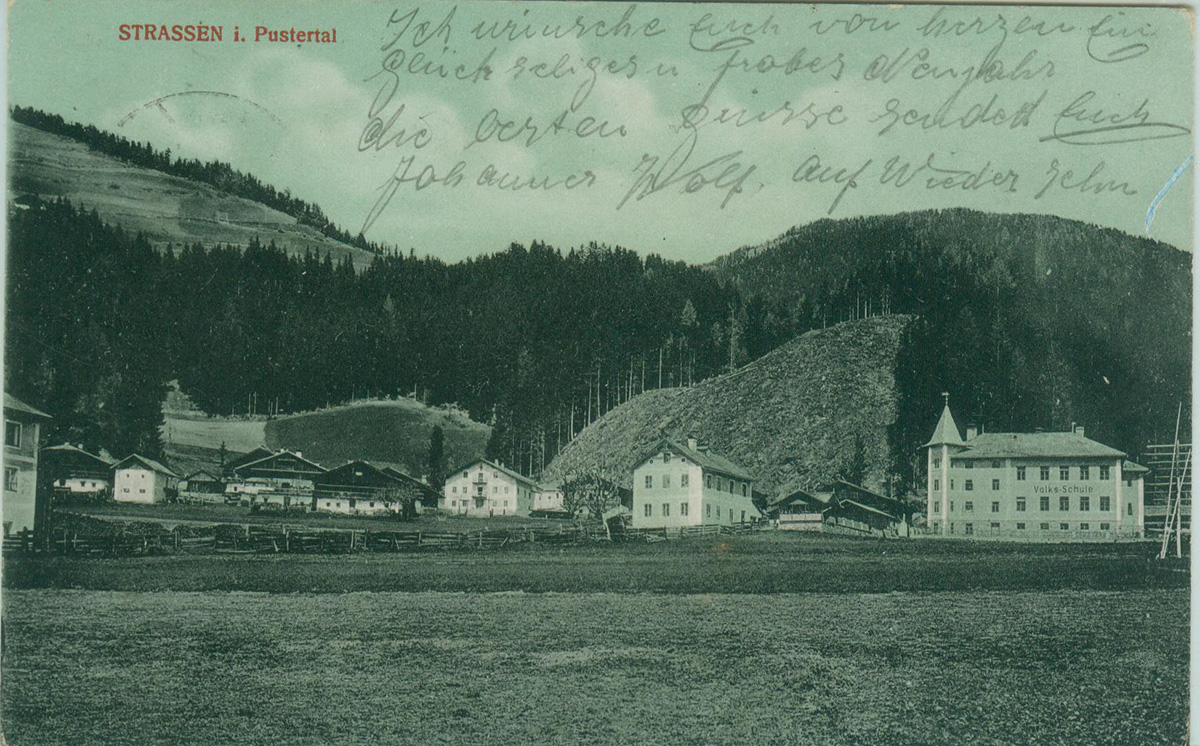 STRASSEN i. Pustertal
Ich wünsche Euch von herzen Ein
Glückseliges u frohes Neujahr
die besten Grüsse sendet Euch
Johanner Wolf. Auf Wieder sehn
Volks-Schule